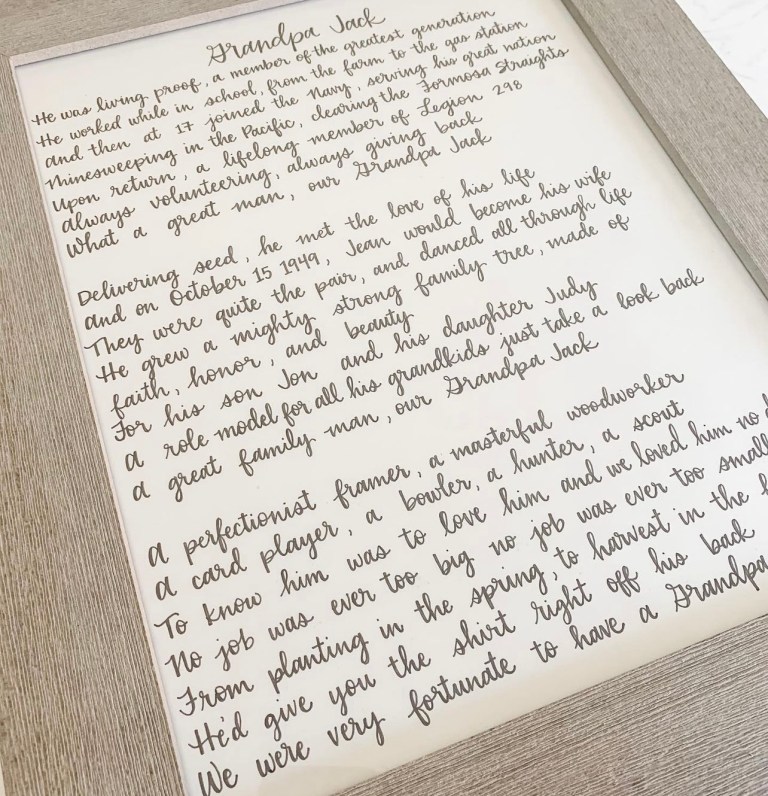 Grandpa Jack
He was living proof, a member of the greatest generation
He worked while in school, from the farm to the gas station
and then at 17 joined the Navy, serving his great nation
Minesweeping in the Pacific, clearing the Formosa Straights
Upon return, a lifelong member of Legion 298
always volunteering, always giving back
What a great man, our Grandpa Jack
Delivering seed, he met the love of his life
and on October 15 1949, Jean would become his wife
They were quite the pair, and danced all through life
He grew a mighty strong family tree, made of
faith, honor, and beauty
For his son Jon and his daughter Judy
a role model for all his grandkids just take a look back
a great family man, our Grandpa Jack
A perfectionist framer, a masterful woodworker
A card player, a bowler, a hunter, a scout
To know him was to love him and we loved him no
No job was ever too big no job was ever too small
From planting in the spring, to harvest in the
He'd give you the shirt right off his back
We were very fortunate to have a Grandpa